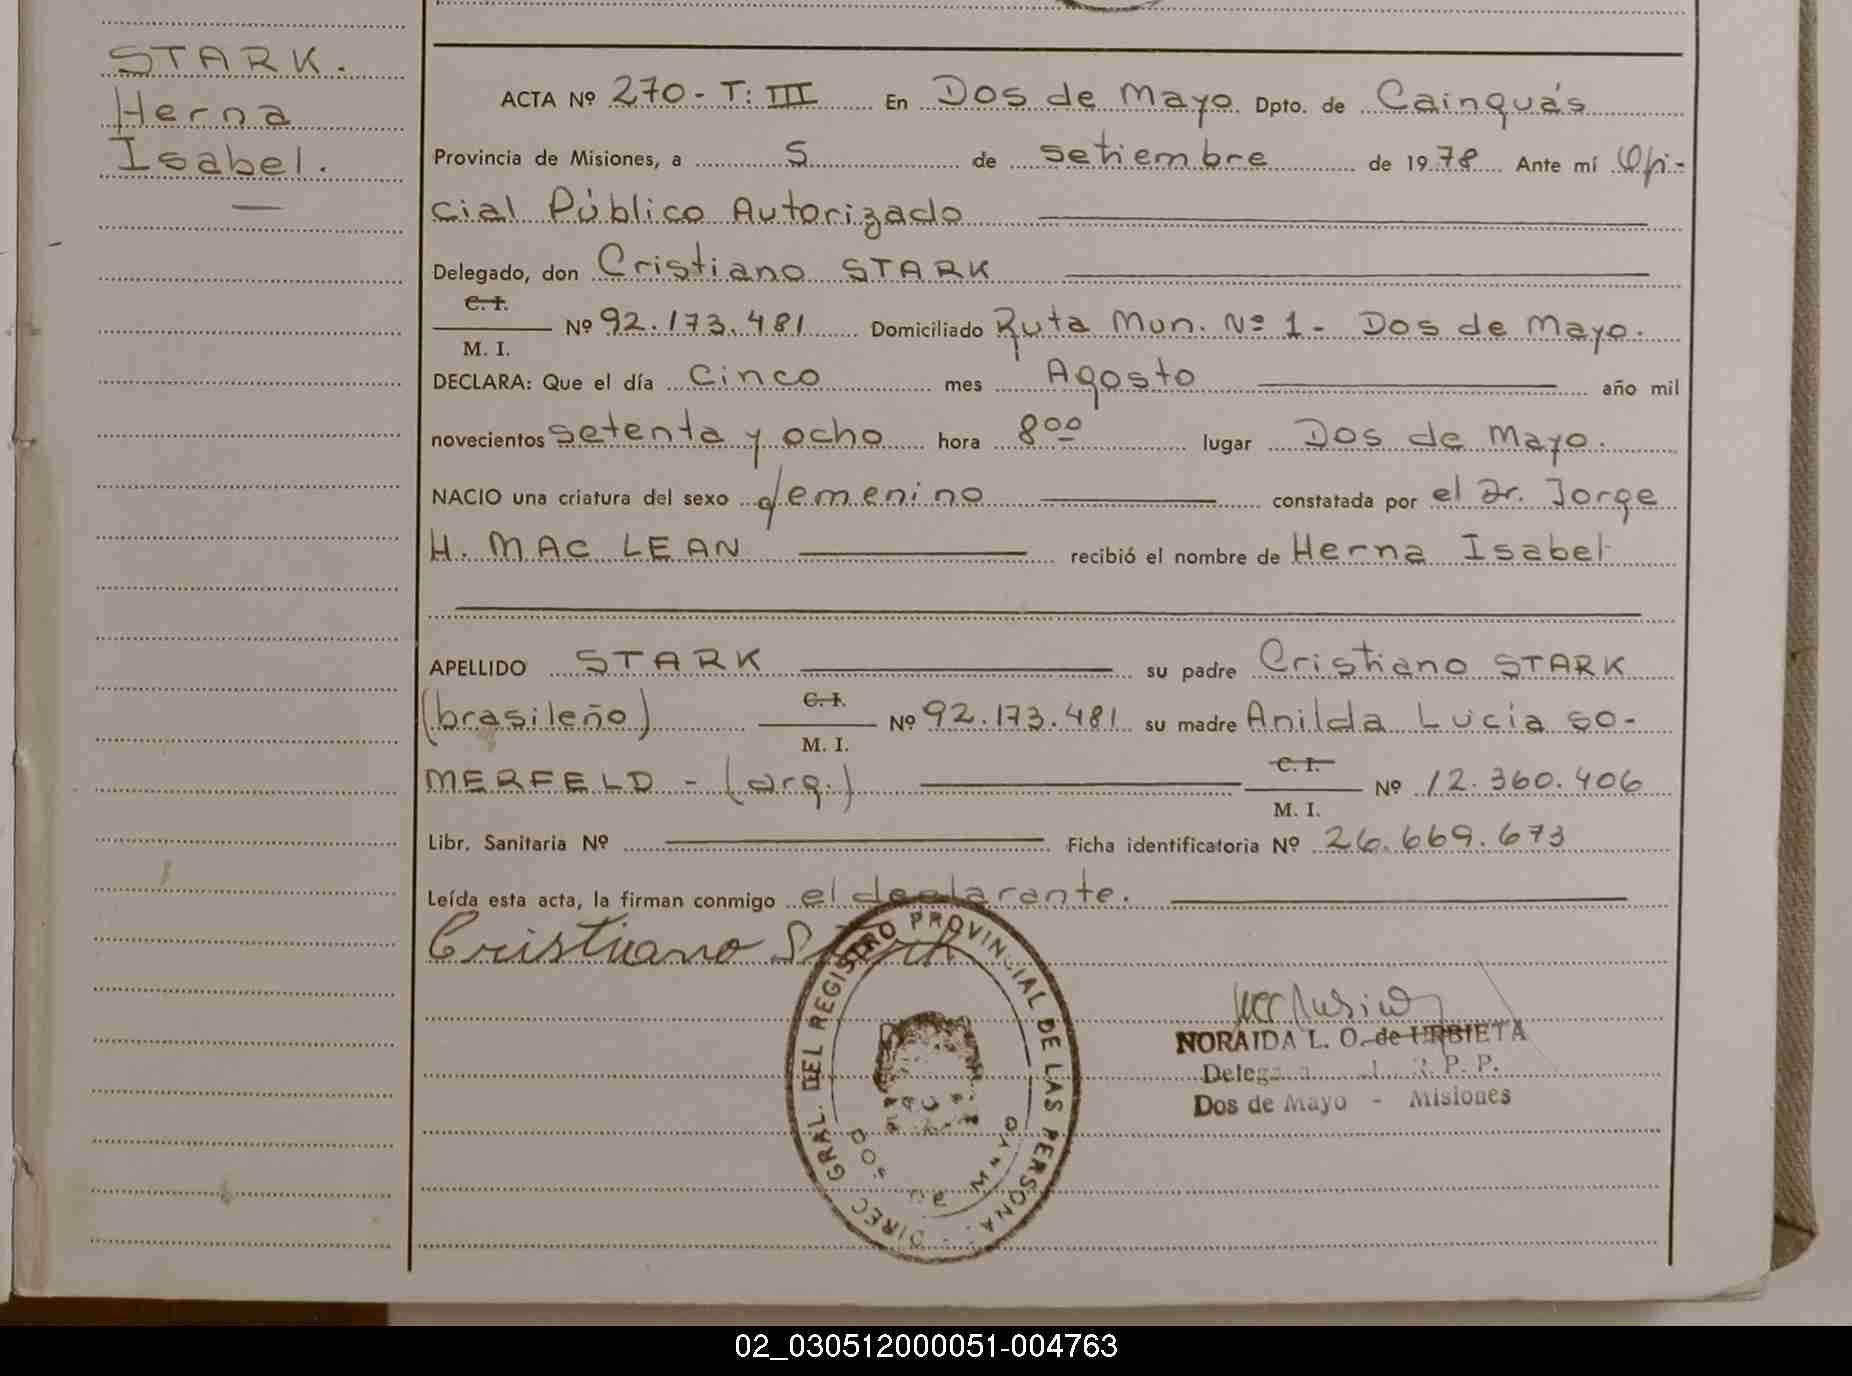 STARK.
Herna
Isabel.
ACTA Nº 270 - T: III En Dos de Mayo Dpto. de Cainguás
Provincia de Misiones, a 5 de setiembre de 1978 Ante mí Ofi-
cial Público Autorizado
Delegado, don Cristiano STARK
C. I.
M. I.
Nº 92.173.481 Domiciliado Ruta Mun. Nº 1 - Dos de Mayo.
DECLARA: Que el día cinco mes Agosto año mil
novecientos setenta y ocho hora 8 00 lugar Dos de Mayo.
NACIO una criatura del sexo femenino constatada por el Dr. Jorge
H. MAC LEAN recibió el nombre de Herna Isabel
APELLIDO STARK su padre Cristiano STARK
(brasileño) C. I. M. I. Nº 92.173.481 su madre Anilda Lucía SO-
MERFELD - (arg.) C. I. M. I. Nº 12.360.406
Libr. Sanitaria Nº Ficha identificatoria Nº 26.669.673
Leída esta acta, la firman conmigo el declarante.
Cristiano Stark
DIREC GRAL. DEL REGISTRO PROVINCIAL DE LAS PERSONA.
DOS DE MAYO
NORAIDA L. O. de URBIETA
R. P. P.
Dos de Mayo - Misiones
02_030512000051-004763